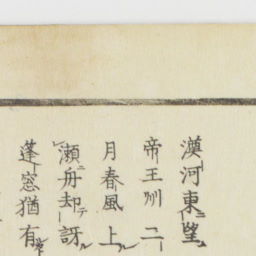 漠河東望
帝王州二
月春風上
瀬舟却訝
蓬窓猶有